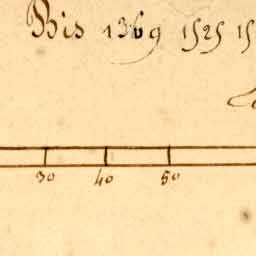 Bis 1369 1525 15
30 40 50